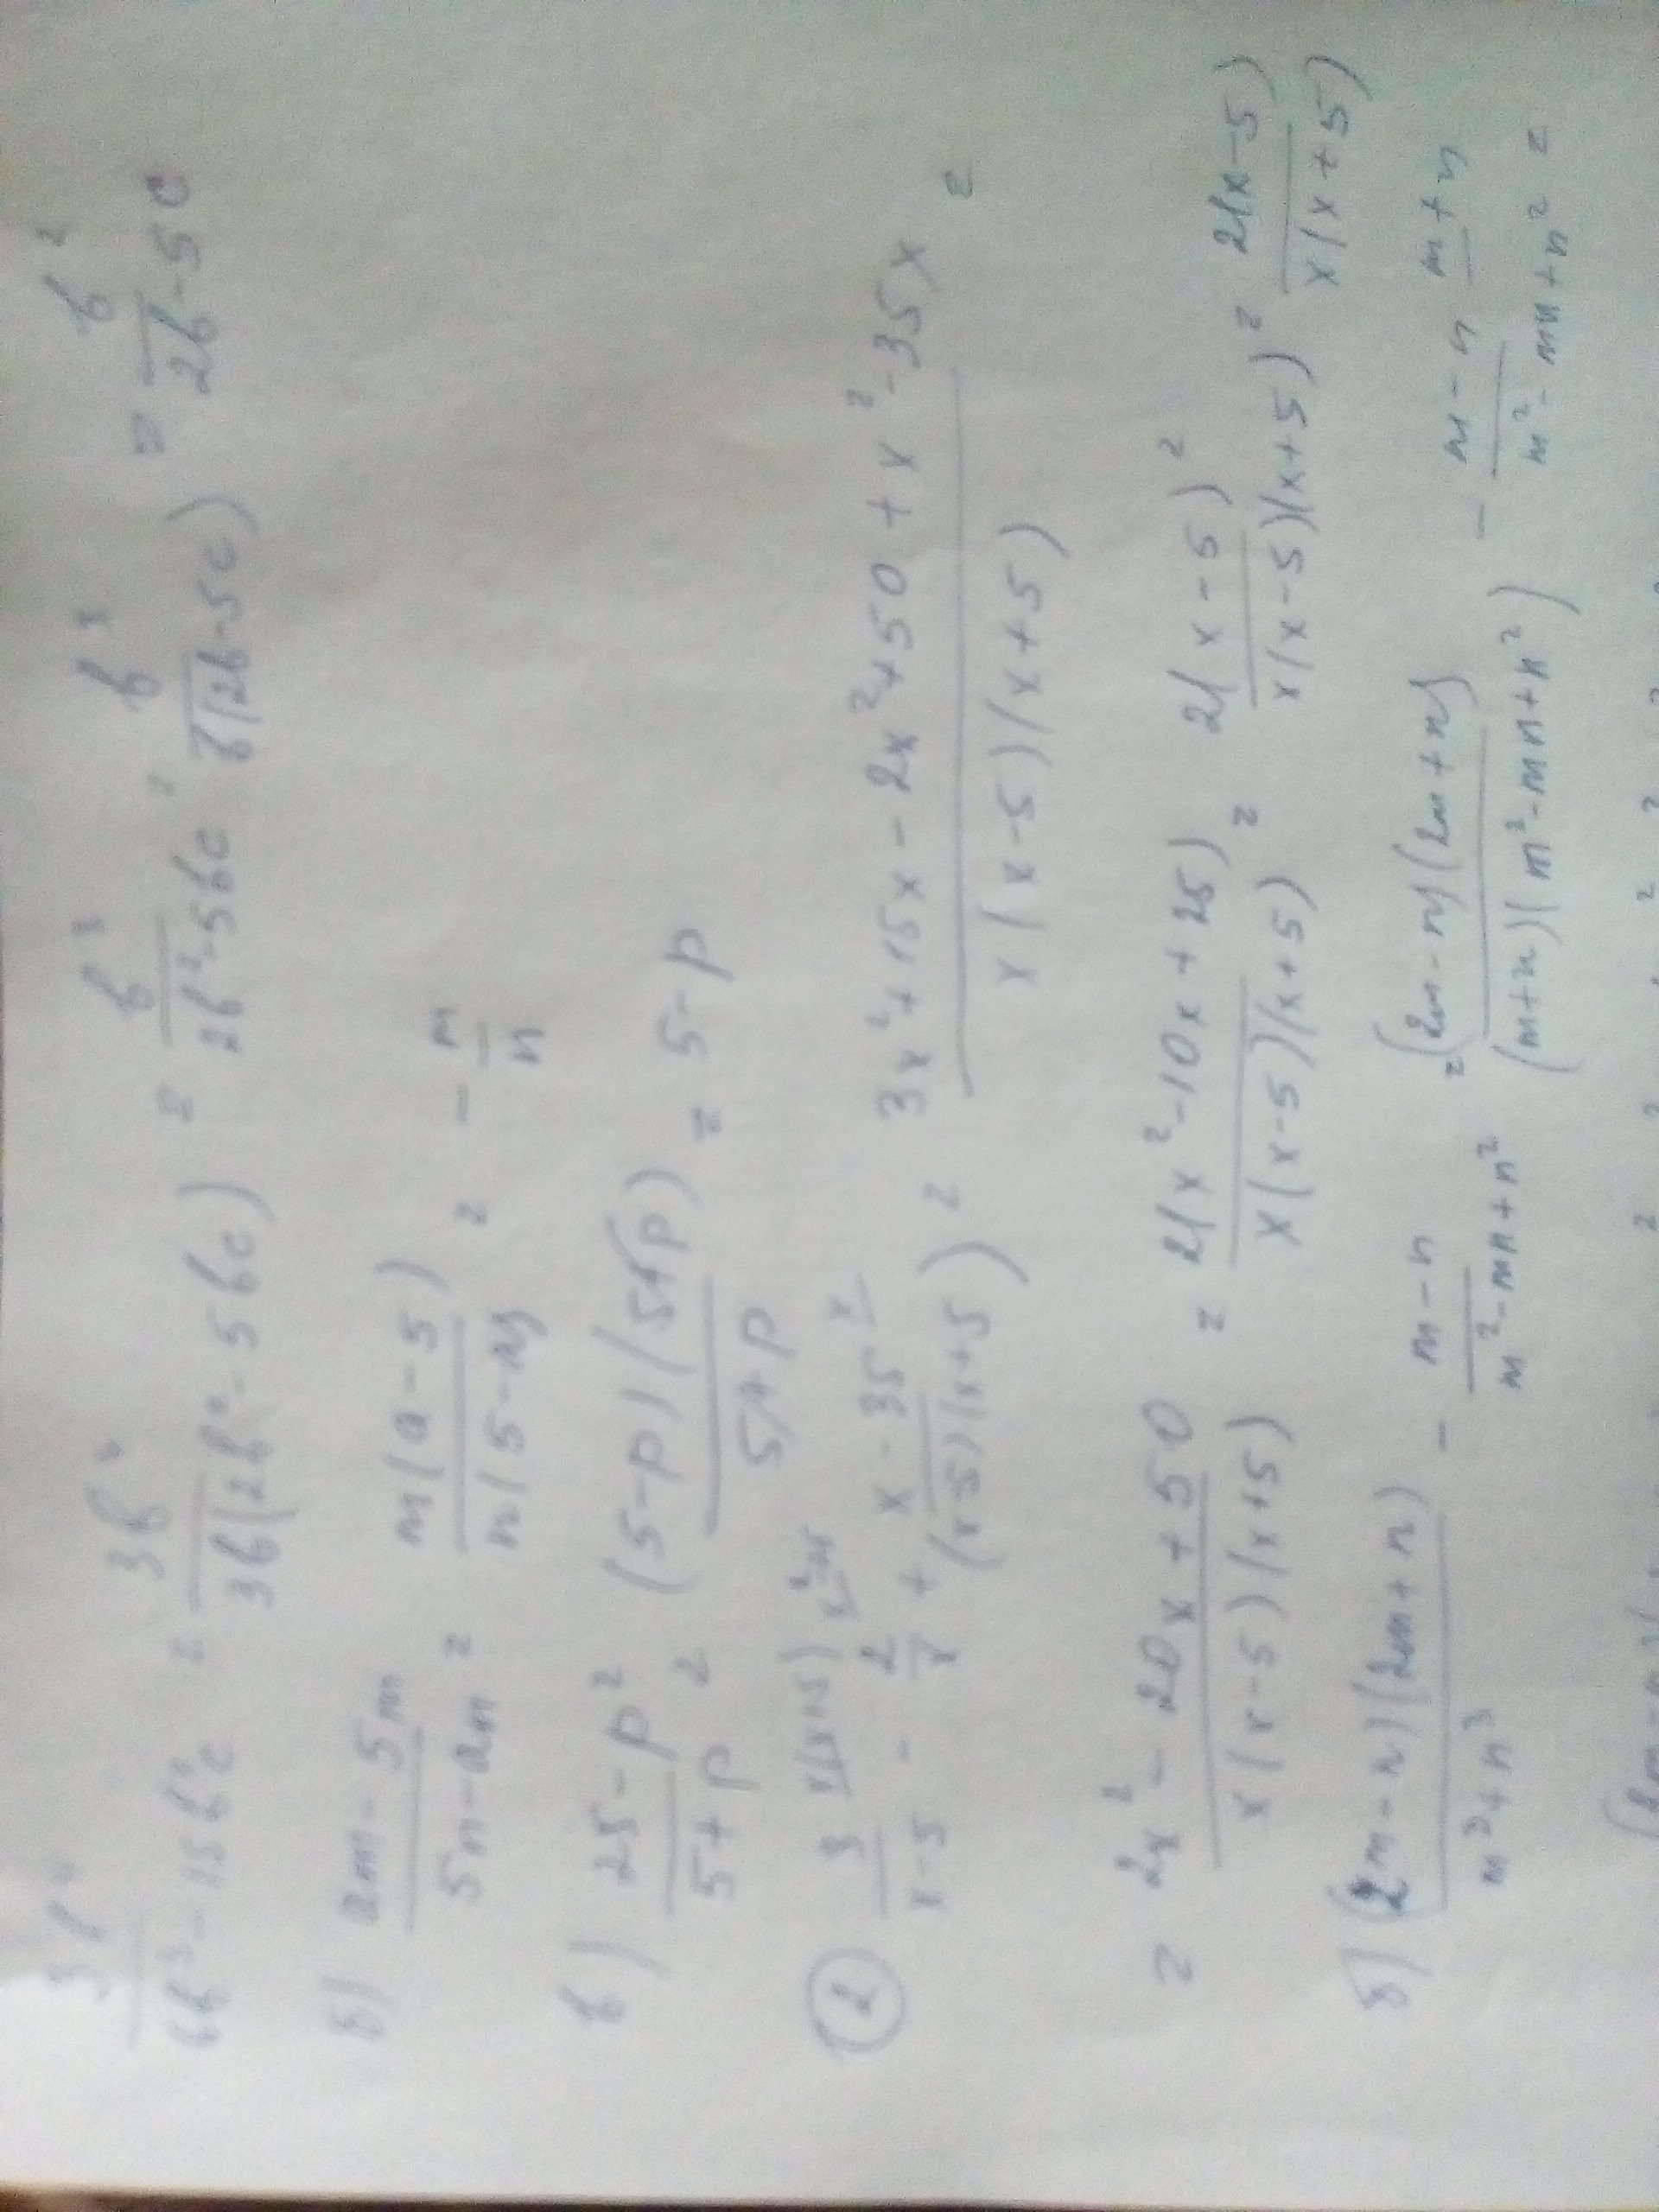 3b⁴/(6b³-15b²c) = 3b⁴/(3b(2b²-5bc)) = b³/(2b²-5bc) = b³/(b(2b-5c)) = b²/(2b-5c)
б) (am-5m)/(5n-an) = m(a-5)/(n(5-a)) = - m/n
в) (25-p²)/(5+p) = (5-p)(5+p)/(5+p) = 5-p
② 3/(x-5) - 2/x + (x-35)/((x-5)(x+5)) = (3x²+15x-2x²+50+x²-35x)/(x(x-5)(x+5)) =
= (2x²-20x+50)/(x(x-5)(x+5)) = 2(x²-10x+25)/(x(x-5)(x+5)) = 2(x-5)²/(x(x-5)(x+5)) = 2(x-5)/(x(x+5))
б) (2m-n)(2m+n)/(m³+n³) - (m-n)/(m²-mn+n²) = (2m-n)(2m+n)/((m+n)(m²-mn+n²)) - (m-n)/(m²-mn+n²) m+n =